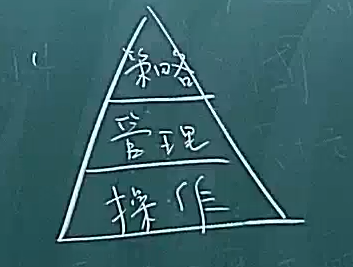 策略
管理
操作